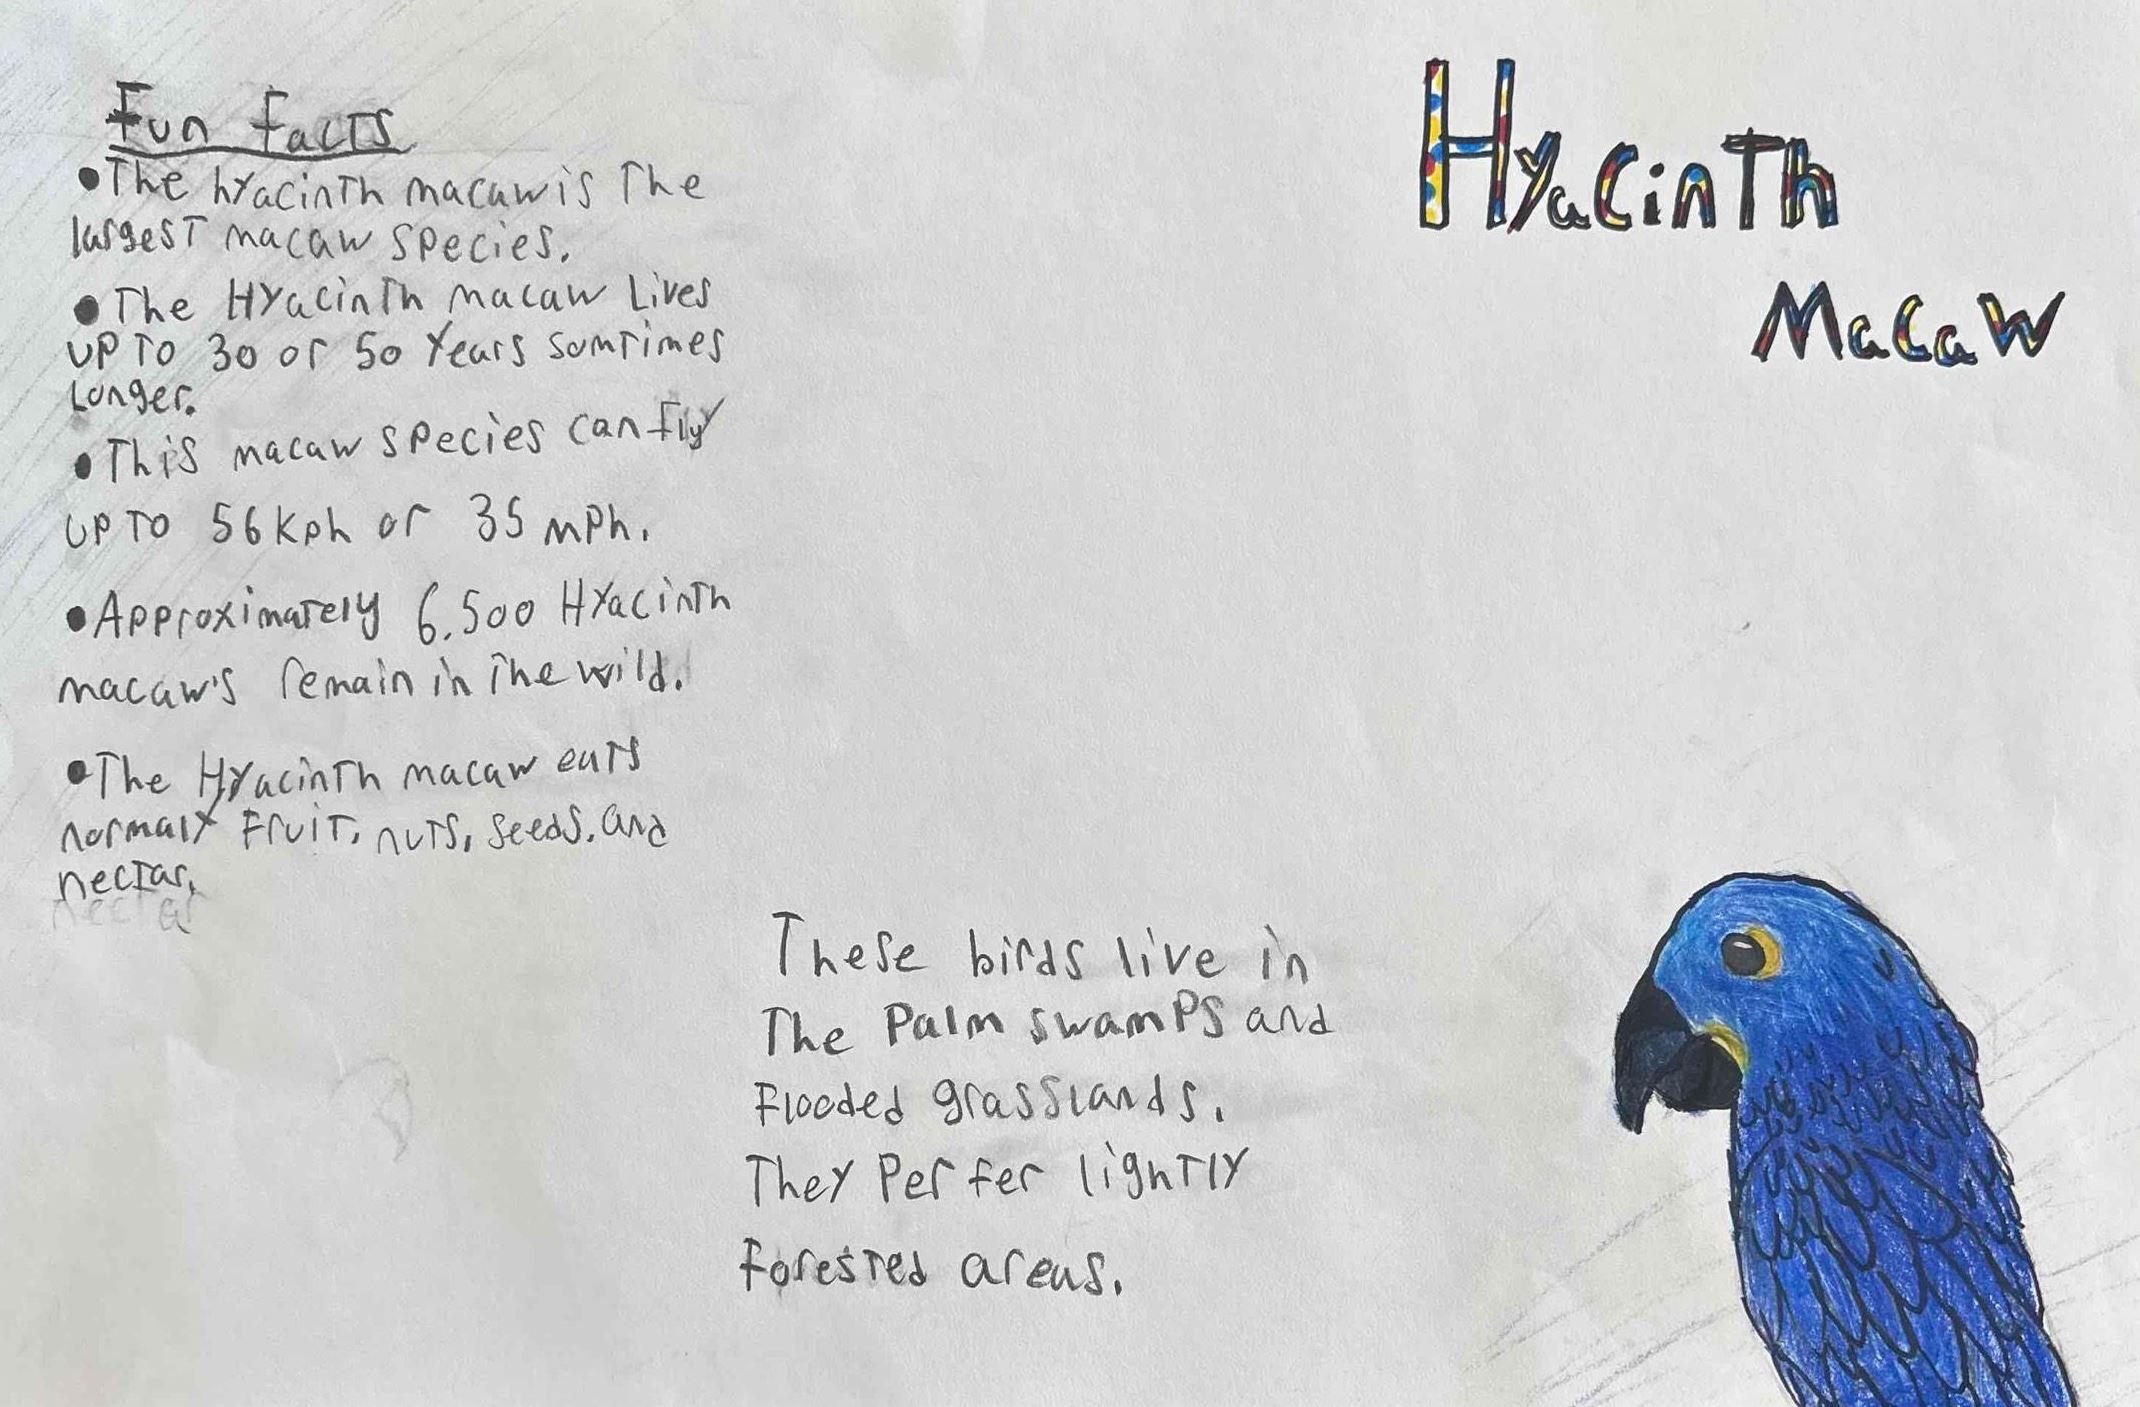 Fun Facts
•The hyacinth macaw is The
largest macaw species.
•The Hyacinth macaw Lives
up to 30 or 50 years somtimes
Longer.
•This macaw species can fly
up to 56kph or 35mph.
•Approximately 6,500 Hyacinth
macaw's remain in the wild.
•The Hyacinth macaw eats
normaly Fruit, nuts, seeds, and
nectar.
nectar
Hyacinth
Macaw
These birds live in
The Palm swamps and
Flooded grasslands.
They Perfer lightly
Forested areas.